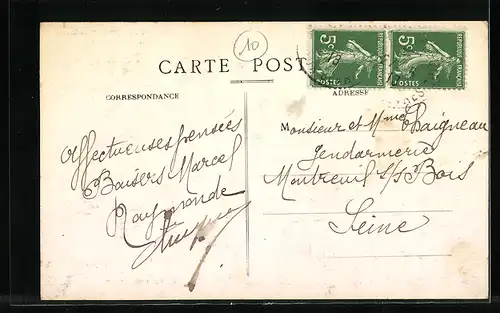 10
CARTE POST
CORRESPONDANCE
ADRESSE
5c REPUBLIQUE FRANÇAISE POSTES
5c REPUBLIQUE FRANÇAISE POSTES
Affectueuses pensées
Baisers Marcel
Raymonde
Monsieur et Mme Chaigneau
Gendarmerie
Montreuil s/s Bois
Seine